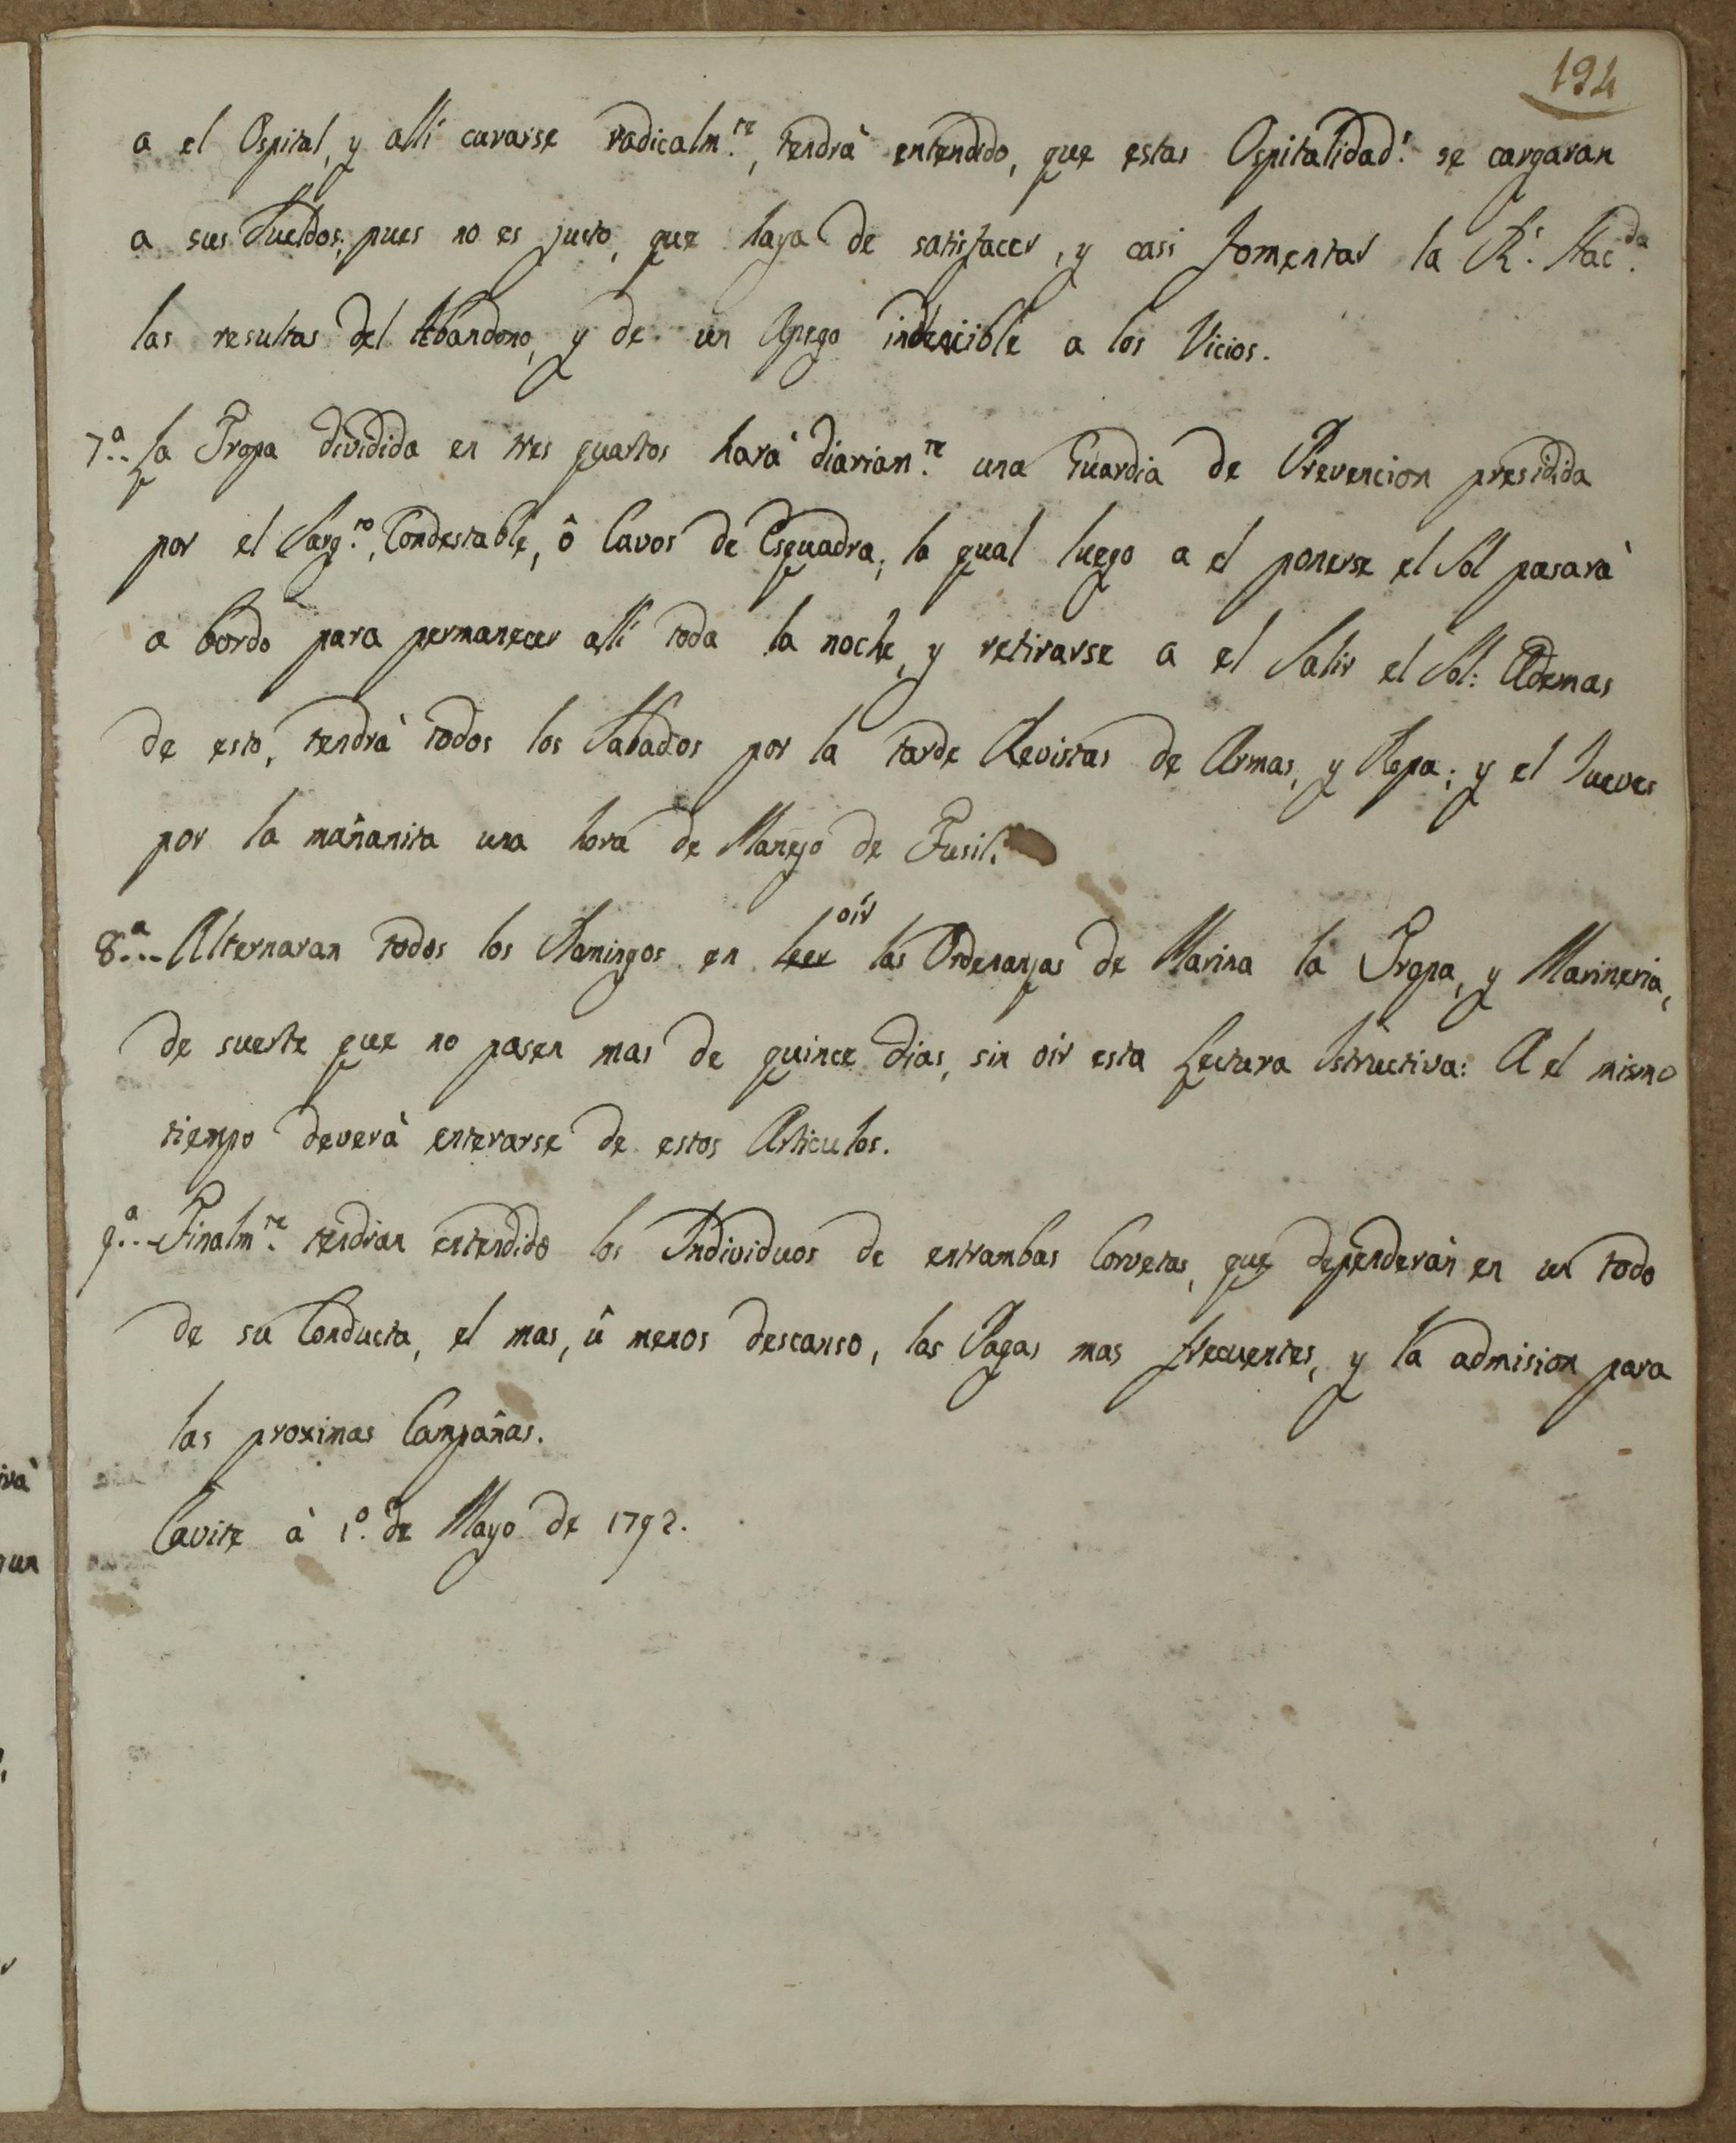 194
a el Ospital, y alli curarse radicalm.te, tendrà entendido, que estas Ospitalidad.s se cargaran
a sus Sueldos; pues no es justo, que haya de satisfacer, y casi fomentar la R.l Hac.da
las resultas del Abandono, y de un Apego indecible a los Vicios.
7.a.. La Tropa dividida en tres quartos harà diariam.te una Guardia de Prevencion presidida
por el Sarg.to, Condestable, ô Cavos de Esquadra; la qual luego a el ponerse el Sol pasarà
a bordo para permanecer alli toda la noche, y retirarse a el Salir el Sol: Ademas
de esto, tendrà todos los Sabados por la tarde Revistas de Armas, y Ropa; y el Jueves
por la mañanita una hora de Manejo de Fusil.
8.a... Alternaran todos los Domingos en leer oir las Ordenanzas de Marina la Tropa, y Marineria,
de suerte que no pasen mas de quince dias, sin oir esta Lectura Istructiva: A el mismo
tiempo deverà enterarse de estos Articulos.
9.a.. Finalm.te tendran entendido los Individuos de entrambas Corvetas, que dependeràn en un todo
de su Conducta, el mas, û menos descanso, las Pagas mas frecuentes, y la admision para
las proximas Campañas.
Cavite à 1.o de Mayo de 1792.
ivà
gun